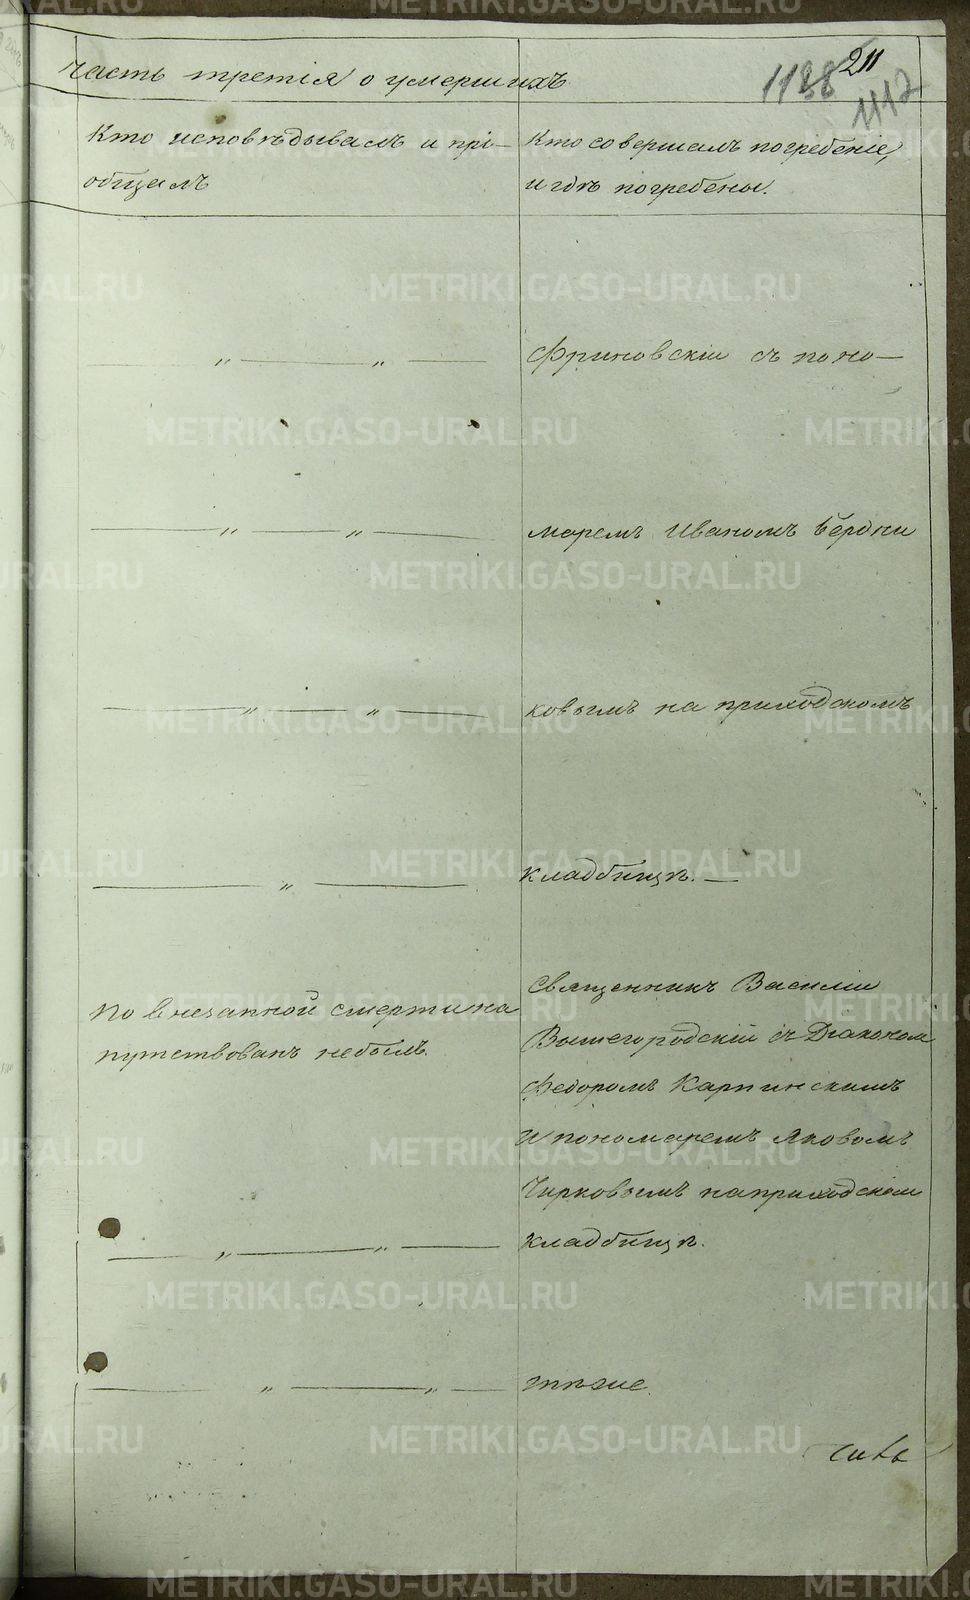 Часть третія о умершихъ
211
1188
1112
Кто исповѣдывалъ и прі-
общалъ
Кто совершалъ погребеніе,
и гдѣ погребены.
Фриновскій съ поно-
маремъ Иваномъ Бердни
ковымъ на приходскомъ
кладбищѣ. —
По внезапной смерти на
путствованъ небылъ.
Священникъ Василій
Вышегородскій съ Діакономъ
Федоромъ Карпинскимъ
и пономаремъ Яковомъ
Чирковымъ на приходскомъ
кладбищѣ.
тѣже.
METRIKI.GASO-URAL.RU